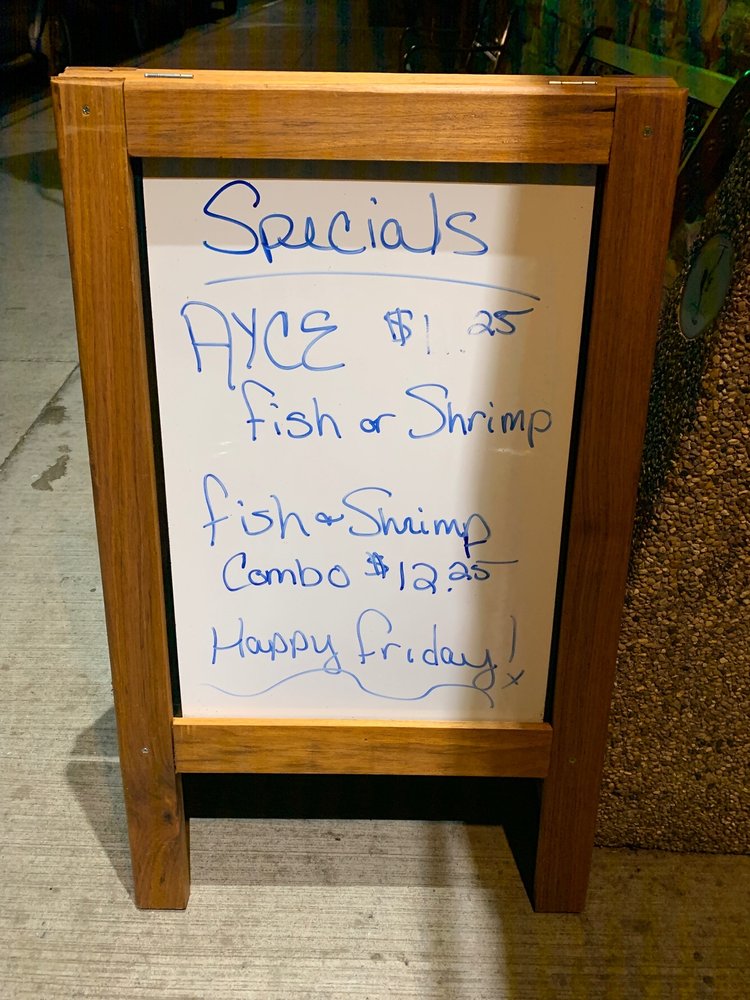 Specials
AYCE $1 .25
Fish or Shrimp
Fish & Shrimp
Combo $12.25
Happy Friday!